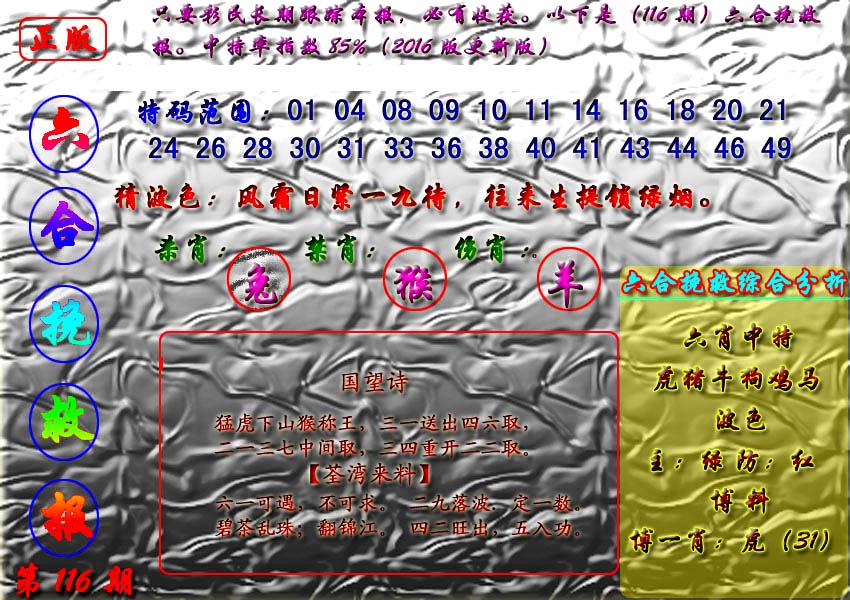 正版
只要彩民长期跟踪本报，必有收获。以下是（116期）六合挽救
报。中特率指数85%（2016版更新版）
六
合
挽
救
报
第116期
特码范围：01 04 08 09 10 11 14 16 18 20 21
24 26 28 30 31 33 36 38 40 41 43 44 46 49
猜波色：风霜日紧一九待，往来生提锁绿烟。
杀肖：兔 禁肖：猴 伤肖：羊
国望诗
猛虎下山猴称王，三一送出四六取，
二一三七中间取，三四重开二二取。
【荃湾来料】
六一可遇，不可求。 二九落波．定一数。
碧茶乱珠；翻锦江。 四二旺出，五入功。
六合挽救综合分析
六肖中特
虎猪牛狗鸡马
波色
主：绿防：红
博料
博一肖：虎（31）